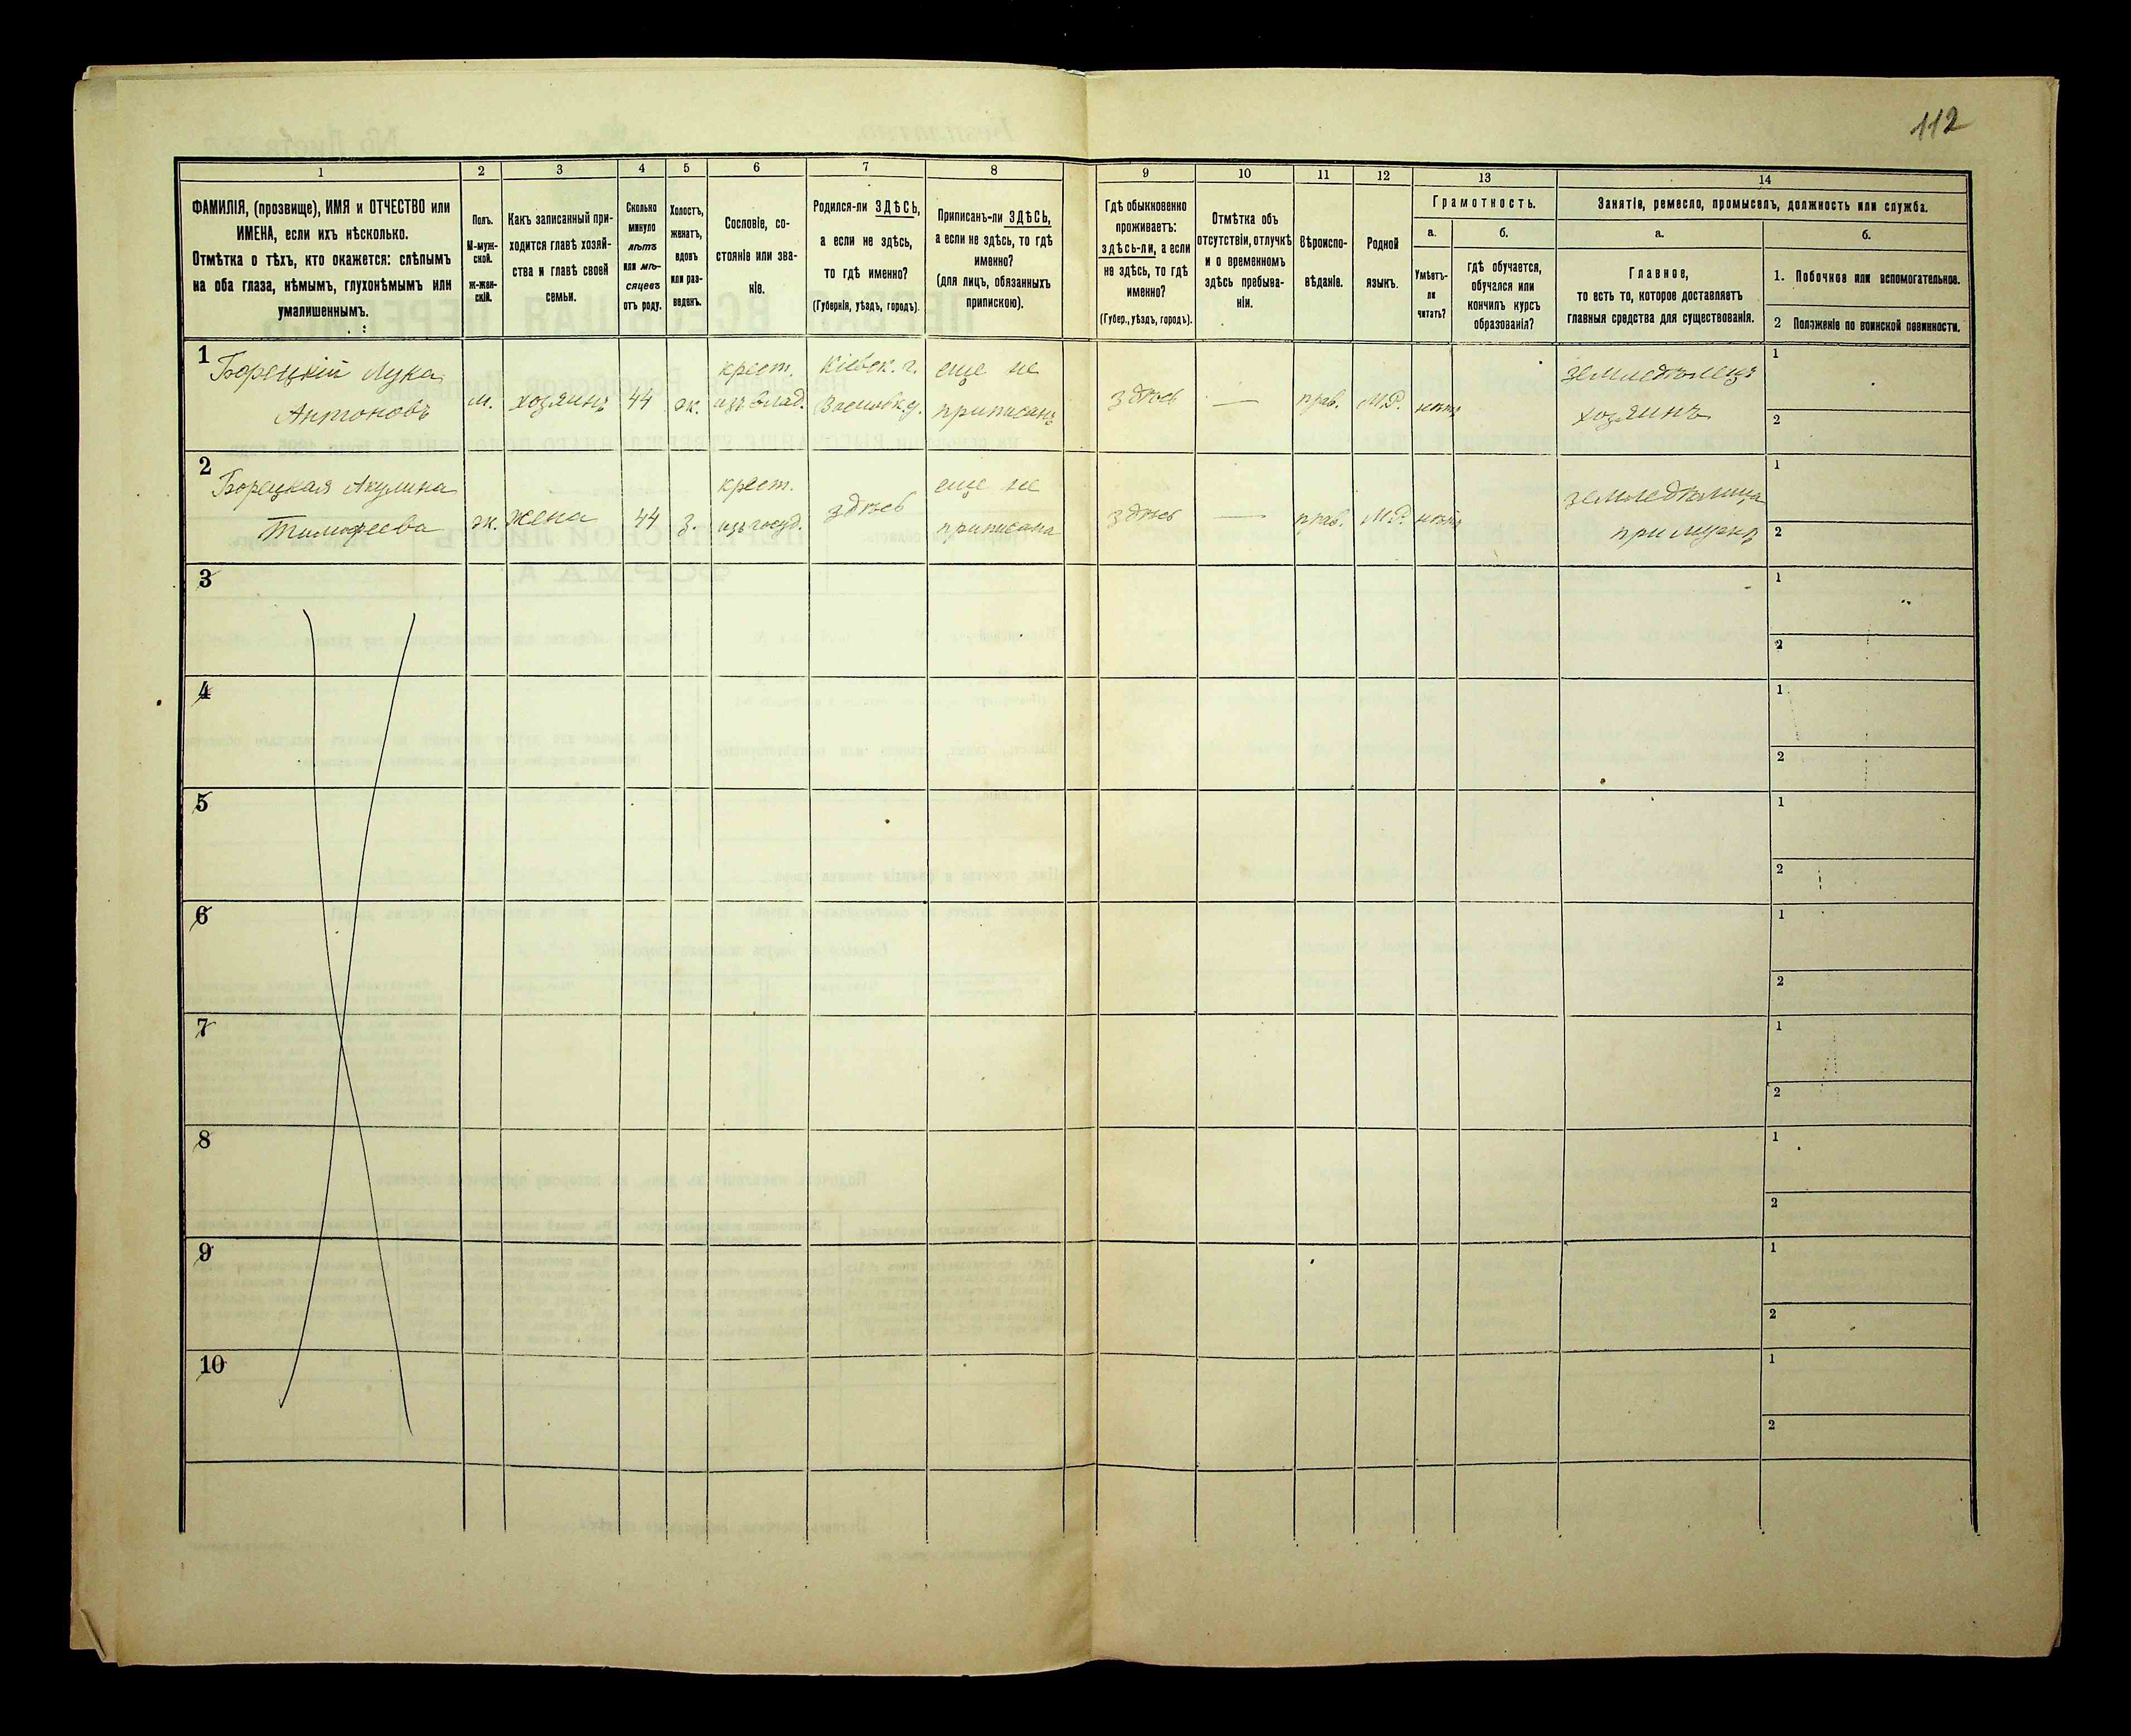 112
1
2
3
4
5
6
7
8
9
10
11
12
13
14
ФАМИЛІЯ, (прозвище), ИМЯ и ОТЧЕСТВО или
ИМЕНА, если ихъ нѣсколько.
Отмѣтка о тѣхъ, кто окажется: слѣпымъ
на оба глаза, нѣмымъ, глухонѣмымъ или
умалишеннымъ.
Полъ.
М-муж-
ской.
ж-жен-
скій.
Какъ записанный при-
ходится главѣ хозяй-
ства и главѣ своей
семьи.
Сколько
минуло
лѣтъ
или мѣ-
сяцевъ
отъ роду.
Холостъ,
женатъ,
вдовъ
или раз-
веденъ.
Сословіе, со-
стояніе или зва-
ніе.
Родился-ли ЗДѢСЬ,
а если не здѣсь,
то гдѣ именно?
(Губернія, уѣздъ, городъ).
Приписанъ-ли ЗДѢСЬ,
а если не здѣсь, то гдѣ
именно?
(для лицъ, обязанныхъ
припискою).
Гдѣ обыкновенно
проживаетъ:
здѣсь-ли, а если
не здѣсь, то гдѣ
именно?
(Губер., уѣздъ, городъ).
Отмѣтка объ
отсутствіи, отлучкѣ
и о временномъ
здѣсь пребыва-
ніи.
Вѣроиспо-
вѣданіе.
Родной
языкъ.
Грамотность.
а.
Умѣетъ-
ли
читать?
б.
гдѣ обучается,
обучался или
кончилъ курсъ
образованія?
Занятіе, ремесло, промыселъ, должность или служба.
а.
Главное,
то есть то, которое доставляетъ
главныя средства для существованія.
б.
1. Побочное или вспомогательное.
2 Положеніе по воинской повинности.
1
Борецкій Лука
Антоновъ
м.
хозяинъ
44
ж.
крест.
изъ влад.
Кіевск. г.
Васильк. у.
еще не
приписанъ
здѣсь
—
прав.
М.Р.
нѣтъ
земледѣлецъ
хозяинъ
1
2
2
Борецкая Акулина
Тимофеева
ж.
жена
44
з.
крест.
изъ госуд.
здѣсь
еще не
приписана
здѣсь
—
прав.
М.Р.
нѣтъ
земледѣлица
при мужѣ
1
2
3
1
2
4
1
2
5
1
2
6
1
2
7
1
2
8
1
2
9
1
2
10
1
2